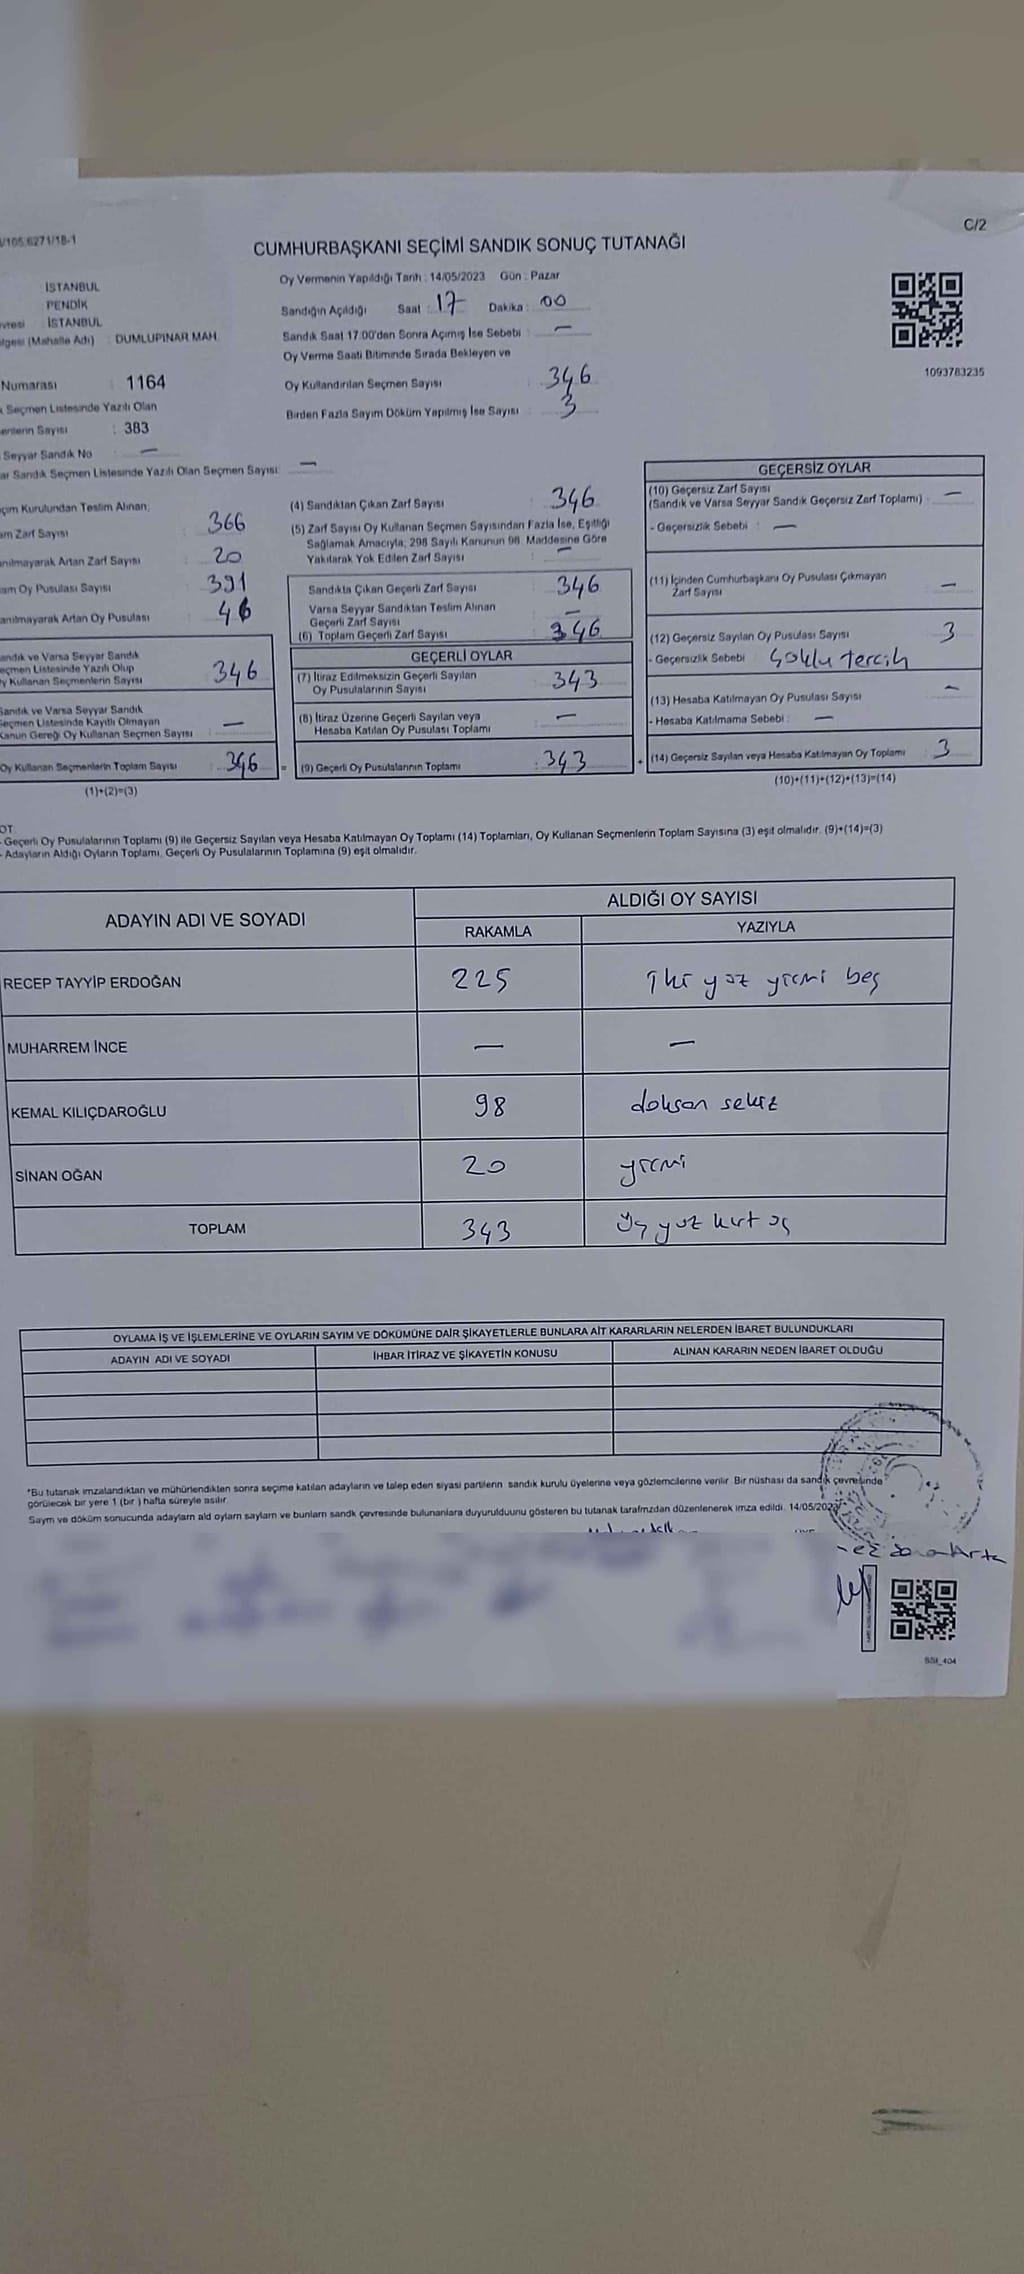 C/2
/105.6271/18-1
CUMHURBAŞKANI SEÇİMİ SANDIK SONUÇ TUTANAĞI
İSTANBUL
PENDİK
İSTANBUL
(Mahalle Adı) : DUMLUPINAR MAH.
Numarası : 1164
Seçmen Listesinde Yazılı Olan
Sayısı : 383
Seyyar Sandık No —
Sandık Seçmen Listesinde Yazılı Olan Seçmen Sayısı: —
Oy Vermenin Yapıldığı Tarih : 14/05/2023 Gün : Pazar
Sandığın Açıldığı Saat : 17 Dakika : 00
Sandık Saat 17:00'den Sonra Açılmış İse Sebebi : —
Oy Verme Saati Bitiminde Sırada Bekleyen ve
Oy Kullandırılan Seçmen Sayısı : 346
Birden Fazla Sayım Döküm Yapılmış İse Sayısı : 3
1093783235
Kurulundan Teslim Alınan;
Zarf Sayısı : 366
Artan Zarf Sayısı : 20
Oy Pusulası Sayısı : 391
Artan Oy Pusulası : 46
Sandık ve Varsa Seyyar Sandık
Seçmen Listesinde Yazılı Olup
Oy Kullanan Seçmenlerin Sayısı : 346
Sandık ve Varsa Seyyar Sandık
Seçmen Listesinde Kayıtlı Olmayan
Kanun Gereği Oy Kullanan Seçmen Sayısı : —
Oy Kullanan Seçmenlerin Toplam Sayısı : 346
(1)+(2)=(3)
(4) Sandıktan Çıkan Zarf Sayısı : 346
(5) Zarf Sayısı Oy Kullanan Seçmen Sayısından Fazla İse, Eşitliği
Sağlamak Amacıyla, 298 Sayılı Kanunun 98. Maddesine Göre
Yakılarak Yok Edilen Zarf Sayısı : —
Sandıkta Çıkan Geçerli Zarf Sayısı : 346
Varsa Seyyar Sandıktan Teslim Alınan
Geçerli Zarf Sayısı : —
(6) Toplam Geçerli Zarf Sayısı : 346
GEÇERLİ OYLAR
(7) İtiraz Edilmeksizin Geçerli Sayılan
Oy Pusulalarının Sayısı : 343
(8) İtiraz Üzerine Geçerli Sayılan veya
Hesaba Katılan Oy Pusulası Toplamı : —
= (9) Geçerli Oy Pusulalarının Toplamı : 343
GEÇERSİZ OYLAR
(10) Geçersiz Zarf Sayısı
(Sandık ve Varsa Seyyar Sandık Geçersiz Zarf Toplamı) : —
- Geçersizlik Sebebi : —
(11) İçinden Cumhurbaşkanı Oy Pusulası Çıkmayan
Zarf Sayısı —
(12) Geçersiz Sayılan Oy Pusulası Sayısı 3
- Geçersizlik Sebebi : Çoklu tercih
(13) Hesaba Katılmayan Oy Pusulası Sayısı —
- Hesaba Katılmama Sebebi : —
+ (14) Geçersiz Sayılan veya Hesaba Katılmayan Oy Toplamı 3
(10)+(11)+(12)+(13)=(14)
OT
- Geçerli Oy Pusulalarının Toplamı (9) ile Geçersiz Sayılan veya Hesaba Katılmayan Oy Toplamı (14) Toplamları, Oy Kullanan Seçmenlerin Toplam Sayısına (3) eşit olmalıdır. (9)+(14)=(3)
- Adayların Aldığı Oyların Toplamı, Geçerli Oy Pusulalarının Toplamına (9) eşit olmalıdır.
ADAYIN ADI VE SOYADI ALDIĞI OY SAYISI
RAKAMLA YAZIYLA
RECEP TAYYİP ERDOĞAN 225 iki yüz yirmi beş
MUHARREM İNCE — —
KEMAL KILIÇDAROĞLU 98 doksan sekiz
SİNAN OĞAN 20 yirmi
TOPLAM 343 Üç yüz kırk üç
OYLAMA İŞ VE İŞLEMLERİNE VE OYLARIN SAYIM VE DÖKÜMÜNE DAİR ŞİKAYETLERLE BUNLARA AİT KARARLARIN NELERDEN İBARET BULUNDUKLARI
ADAYIN ADI VE SOYADI İHBAR İTİRAZ VE ŞİKAYETİN KONUSU ALINAN KARARIN NEDEN İBARET OLDUĞU
*Bu tutanak imzalandıktan ve mühürlendikten sonra seçime katılan adayların ve talep eden siyasi partilerin sandık kurulu üyelerine veya gözlemcilerine verilir. Bir nüshası da sandık çevresinde
görülecek bir yere 1 (bir ) hafta süreyle asılır.
Saym ve döküm sonucunda adaylarn ald oylarn saylarn ve bunlarn sandk çevresinde bulunanlara duyurulduunu gösteren bu tutanak tarafmzdan düzenlenerek imza edildi. 14/05/202
SSI_404